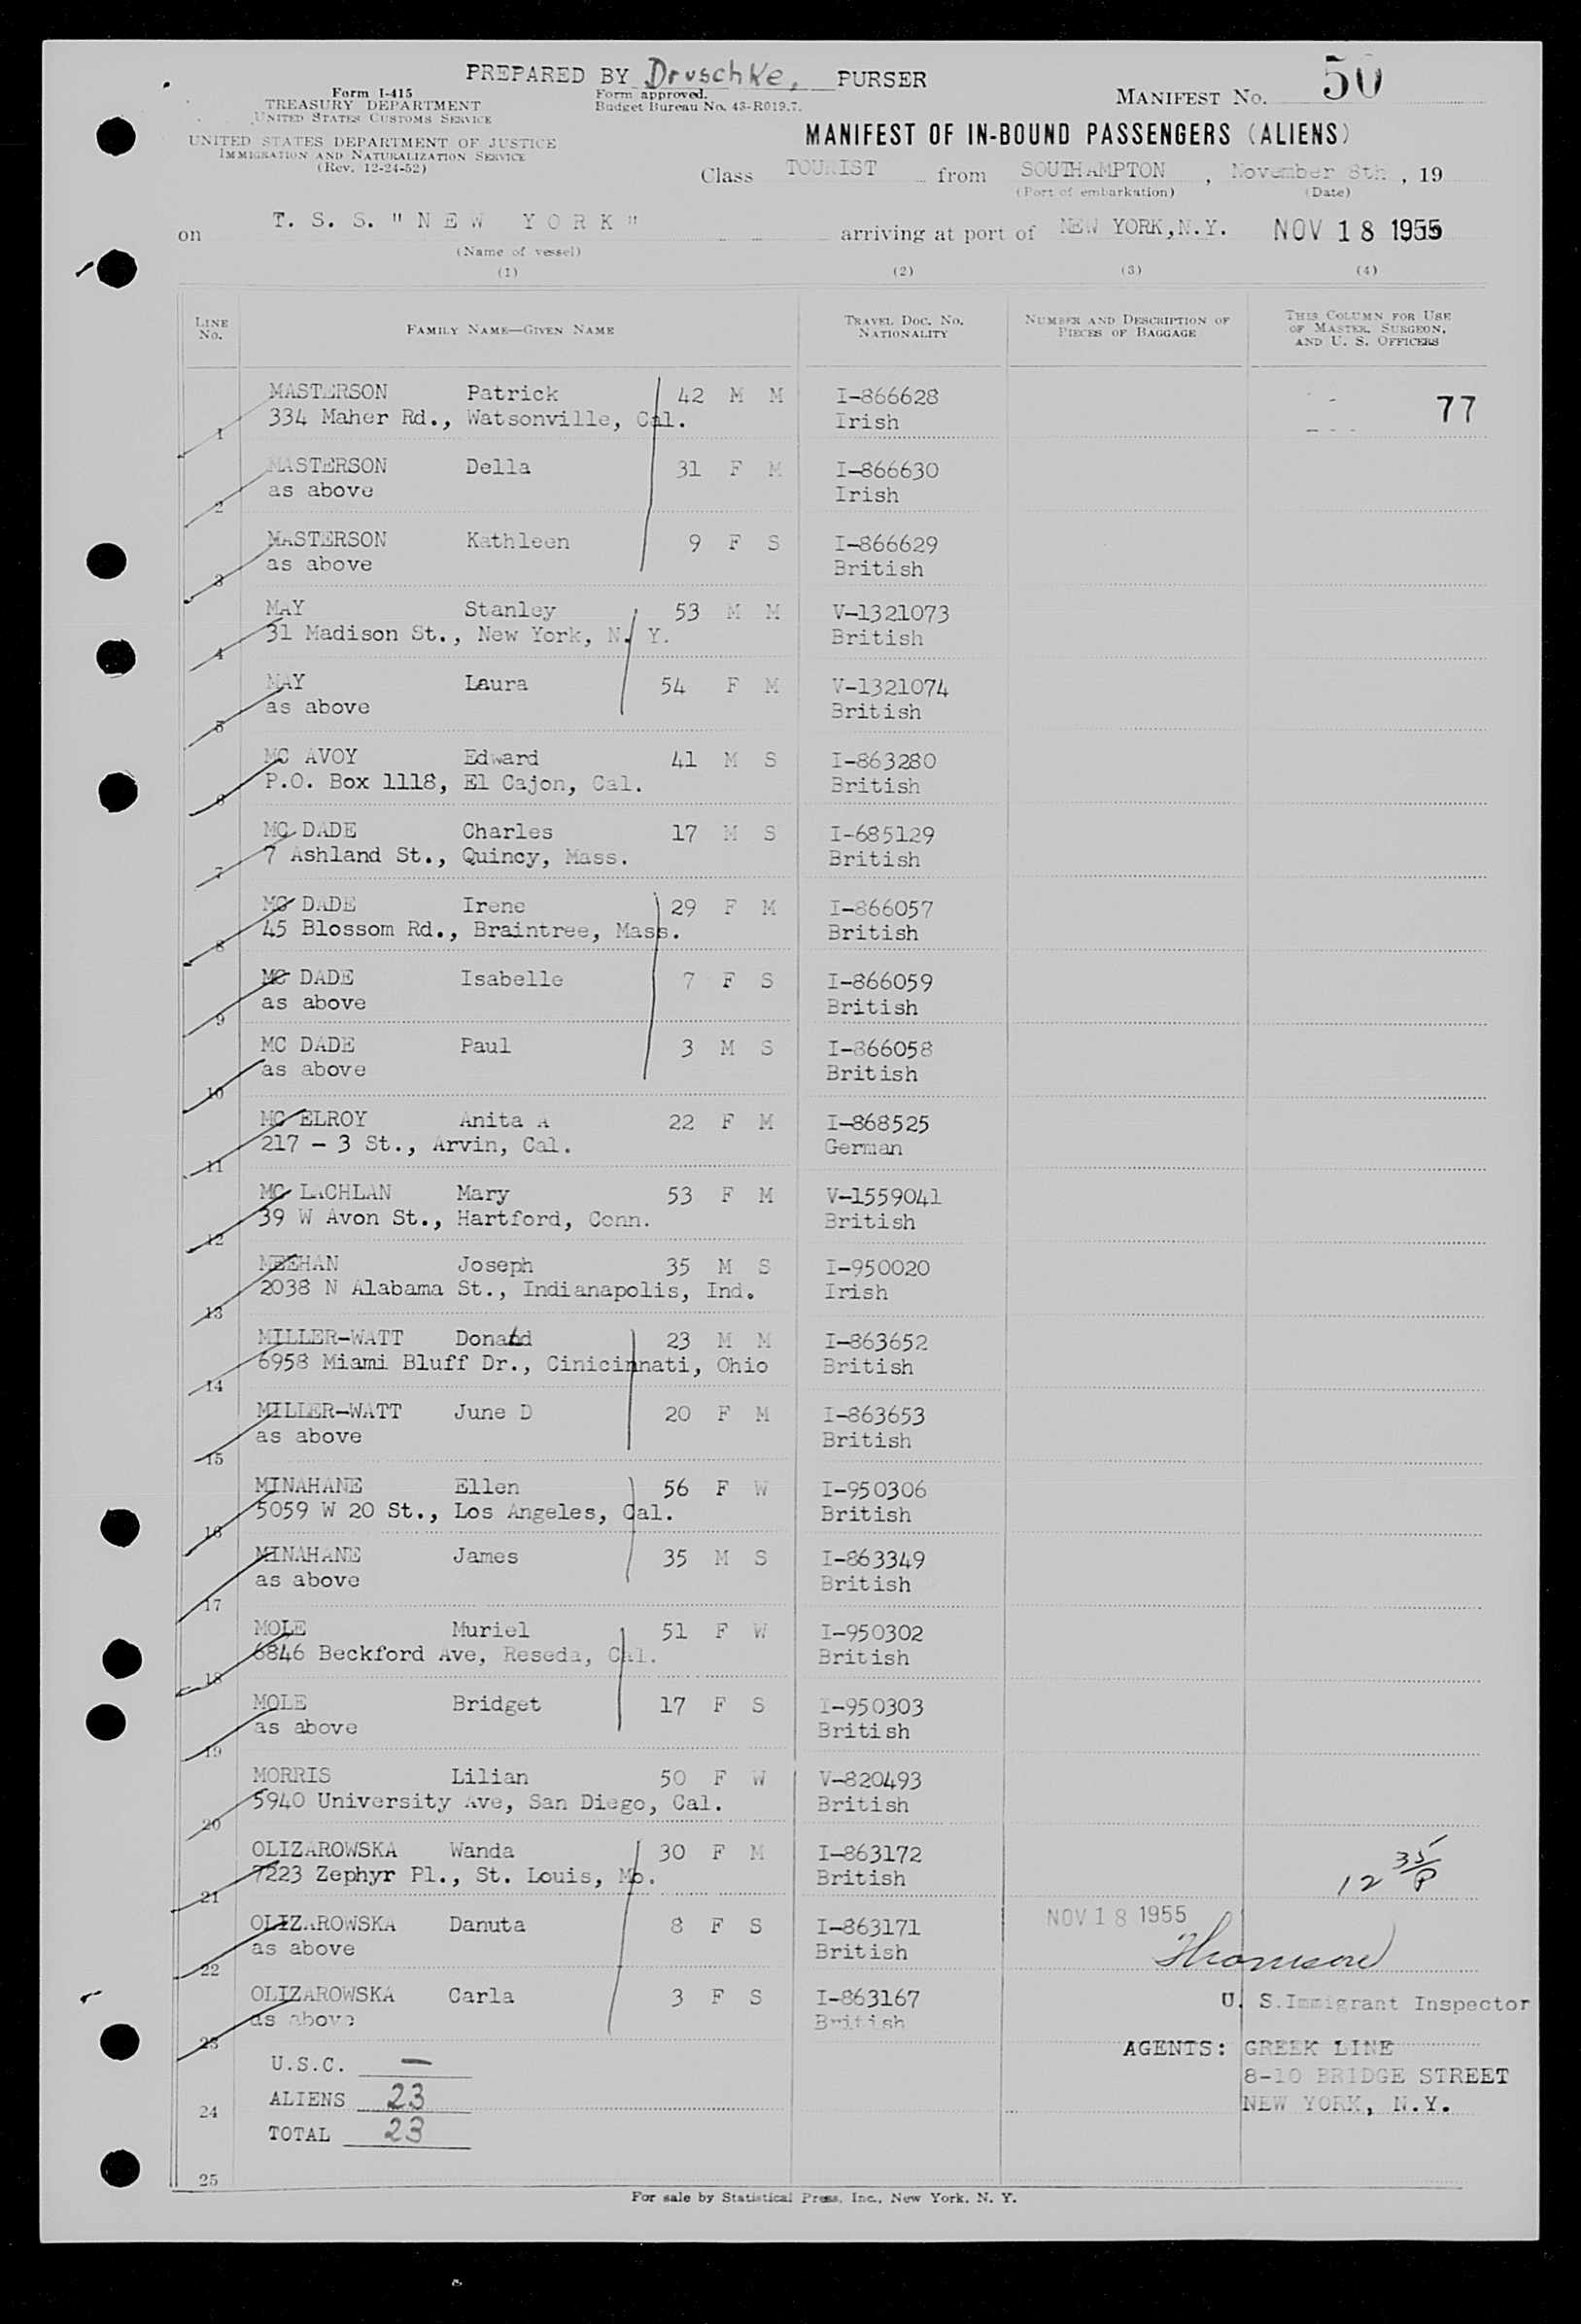 PREPARED BY Druschke, PURSER
Form I-415
TREASURY DEPARTMENT
UNITED STATES CUSTOMS SERVICE
Form approved.
Budget Bureau No. 43-R019.7.
MANIFEST NO. 50
UNITED STATES DEPARTMENT OF JUSTICE
IMMIGRATION AND NATURALIZATION SERVICE
(Rev. 12-24-52)
MANIFEST OF IN-BOUND PASSENGERS (ALIENS)
Class TOURIST from SOUTHAMPTON, November 8th, 19
(Port of embarkation) (Date)
on T. S. S. "NEW YORK" arriving at port of NEW YORK, N.Y. NOV 18 1955
(Name of vessel)
(1) (2) (3) (4)
LINE NO. FAMILY NAME—GIVEN NAME TRAVEL DOC. NO. NATIONALITY NUMBER AND DESCRIPTION OF PIECES OF BAGGAGE THIS COLUMN FOR USE OF MASTER, SURGEON, AND U. S. OFFICERS
MASTERSON Patrick 42 M M I-866628 77
1 334 Maher Rd., Watsonville, Cal. Irish
MASTERSON Della 31 F M I-866630
2 as above Irish
MASTERSON Kathleen 9 F S I-866629
3 as above British
MAY Stanley 53 M M V-1321073
4 31 Madison St., New York, N. Y. British
MAY Laura 54 F M V-1321074
5 as above British
MC AVOY Edward 41 M S I-863280
6 P.O. Box 1118, El Cajon, Cal. British
MC DADE Charles 17 M S I-685129
7 7 Ashland St., Quincy, Mass. British
MC DADE Irene 29 F M I-866057
8 45 Blossom Rd., Braintree, Mass. British
MC DADE Isabelle 7 F S I-866059
9 as above British
MC DADE Paul 3 M S I-866058
10 as above British
MC ELROY Anita A 22 F M I-868525
11 217 - 3 St., Arvin, Cal. German
MC LACHLAN Mary 53 F M V-1559041
12 39 W Avon St., Hartford, Conn. British
MEEHAN Joseph 35 M S I-950020
13 2038 N Alabama St., Indianapolis, Ind. Irish
MILLER-WATT Donald 23 M M I-863652
14 6958 Miami Bluff Dr., Cinicinnati, Ohio British
MILLER-WATT June D 20 F M I-863653
15 as above British
MINAHANE Ellen 56 F W I-950306
16 5059 W 20 St., Los Angeles, Cal. British
MINAHANE James 35 M S I-863349
17 as above British
MOLE Muriel 51 F W I-950302
18 6846 Beckford Ave, Reseda, Cal. British
MOLE Bridget 17 F S I-950303
19 as above British
MORRIS Lilian 50 F W V-820493
20 5940 University Ave, San Diego, Cal. British
OLIZAROWSKA Wanda 30 F M I-863172
21 7223 Zephyr Pl., St. Louis, Mo. British 12 35/P
OLIZAROWSKA Danuta 8 F S I-863171 NOV 18 1955
22 as above British Thomson
OLIZAROWSKA Carla 3 F S I-863167 U. S. Immigrant Inspector
23 as above British
AGENTS: GREEK LINE
8-10 BRIDGE STREET
NEW YORK, N.Y.
U.S.C. —
24 ALIENS 23
TOTAL 23
25
For sale by Statistical Press, Inc., New York, N. Y.